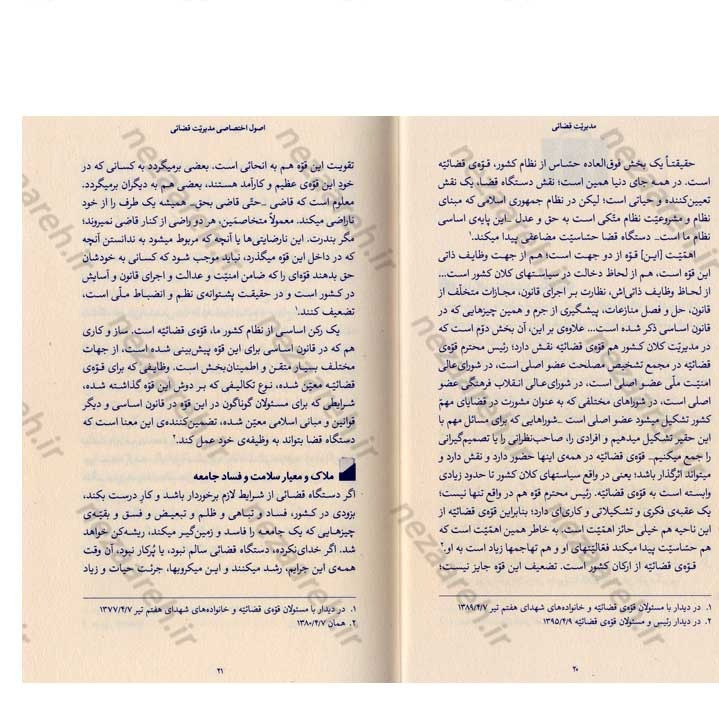 مدیریّت قضائی
حقیقتاً یک بخش فوق‌العاده حسّاس از نظام کشور، قـوّه‌ی قضائیّه
است. در همـه جای دنیا همین است؛ نقش دستگاه قضا، یک نقش
تعیین‌کننده و حیاتی است؛ لیکن در نظام جمهوری اسلامی که مبنای
نظام و مشروعیّت نظام متّکی است به حق و عدل ــ این پایه‌ی اساسی
نظام ما است ــ دستگاه قضا حسّاسیّت مضاعفی پیدا میکند.۱
اهمّیّت [این] قوّه از دو جهت است؛ هم از جهت وظایف ذاتی
این قوّه است، هم از لحاظ دخالت در سیاستهای کلان کشور است...
از لحاظ وظایف ذاتی‌اش، نظارت بر اجرای قانون، مجازات متخلّف از
قانون، حل و فصل منازعات، پیشگیری از جرم و همین چیزهایی که در
قانون اساسی ذکر شده است... علاوه‌ی بر این، آن بخش دوّم است که
در مدیریّت کلان کشور هم قوّه‌ی قضائیّه نقش دارد؛ رئیس محترم قوّه‌ی
قضائیّه در مجمع تشخیص مصلحت عضو اصلی است، در شورای‌عالی
امنیّت ملّی عضو اصلی است، در شورای‌عالی انقلاب فرهنگی عضو
اصلی است، در شوراهای مختلفی که به عنوان مشورت در قضایای مهمّ
کشور تشکیل میشود عضو اصلی است ــ شوراهایی که برای مسائل مهم با
این حقیر تشکیل میدهیم و افرادی را، صاحب‌نظرانی را با تصمیم‌گیرانی
را جمع میکنیم ــ قوّه‌ی قضائیّه در همه‌ی اینها حضور دارد و نقش دارد و
میتواند اثرگذار باشد؛ یعنی در واقع سیاستهای کلان کشور تا حدود زیادی
وابسته است به قوّه‌ی قضائیّه. رئیس محترم قوّه هم در واقع تنها نیست؛
یک عقبه‌ی فکری و تشکیلاتی و کاری‌ای دارد؛ بنابراین قوّه‌ی قضائیّه از
این ناحیه هم خیلی حائز اهمّیّت است. به خاطر همین اهمّیّت است که
هم حسّاسیّت پیدا میکند فعّالیّتهای او و هم تهاجمها زیاد است به او.۲
قـوّه‌ی قضائیّه از ارکان کشور است. تضعیف این قوّه جایز نیست؛
۱. در دیدار با مسئولان قوّه‌ی قضائیّه و خانواده‌های شهدای هفتم تیر ۱۳۸۹/۴/۷
۲. در دیدار رئیس و مسئولان قوّه‌ی قضائیّه ۱۳۹۵/۴/۹
۲۰
اصول اختصاصی مدیریّت قضائی
تقویت این قوّه هم به انحائی است. بعضی برمیگردد به کسانی که در
خود این قوّه‌ی عظیم و کارآمد هستند، بعضی هم به دیگران برمیگردد.
معلوم است که قاضی ــ حتّی قاضی بحق ــ همیشه یک طرف را از خود
ناراضی میکند. معمولاً متخاصمَین، هر دو راضی از کنار قاضی نمیروند؛
مگر بندرت. این نارضایتی‌ها یا آنچه که مربوط میشود به ندانستن آنچه
که در داخل این قوّه میگذرد، نباید موجب شود که کسانی به خودشان
حق بدهند قوّه‌ای را که ضامن امنیّت و عدالت و اجرای قانون و آسایش
در کشور است و در حقیقت پشتوانه‌ی نظم و انضباط ملّی است،
تضعیف کنند.۱
یک رکن اساسی از نظام کشور ما، قوّه‌ی قضائیّه است. ساز و کاری
هم که در قانون اساسی برای این قوّه پیش‌بینی شده است، از جهات
مختلف بسیار متقن و اطمینان‌بخش است. وظایفی که برای قـوّه‌ی
قضائیّه معیّن شده، نوع تکالیفی که بر دوش این قوّه گذاشته شده،
شرایطی که برای مسئولان گوناگون در این قوّه در قانون اساسی و دیگر
قوانین و مبانی اسلامی معیّن شده، تضمین‌کننده‌ی این معنا است که
دستگاه قضا بتواند به وظیفه‌ی خود عمل کند.۲
ملاک و معیار سلامت و فساد جامعه
اگر دستگاه قضائی از شرایط لازم برخوردار باشد و کارِ درست بکند،
بزودی در کشور، فساد و تباهی و ظلم و تبعیض و فسق و بقیّه‌ی
چیزهایی که یک جامعه را فاسد و زمین‌گیر میکند، ریشه‌کن خواهد
شد. اگر خدای‌نکرده، دستگاه قضائی سالم نبود، یا پُرکار نبود، آن وقت
همه‌ی این جرایم، رشد میکنند و این میکروبها، جرئت حیات و زیاد
۱. در دیدار با مسئولان قوّه‌ی قضائیّه و خانواده‌های شهدای هفتم تیر ۱۳۷۷/۴/۷
۲. همان ۱۳۸۰/۴/۷
۲۱
nezareh.ir